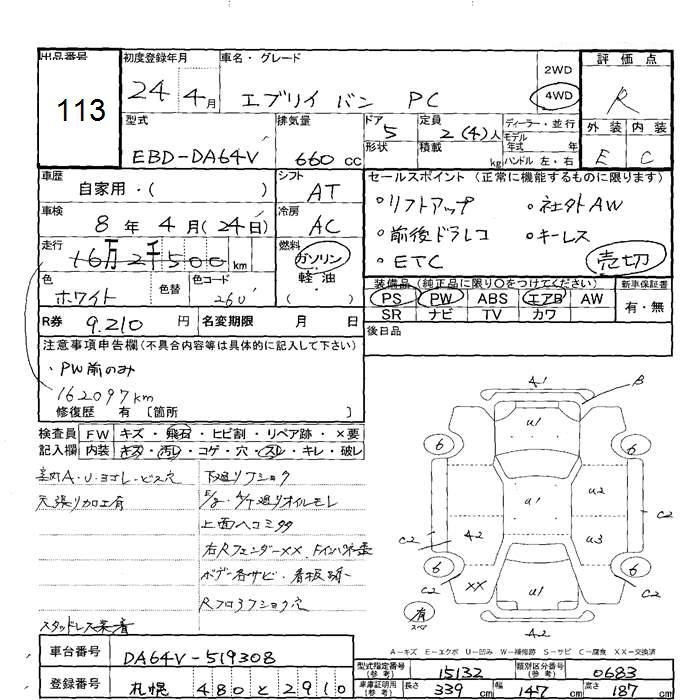 出品番号
113
初度登録年月
24年 4月
車名・グレード
エブリイ バン PC
2WD
4WD
評価点
R
型式
EBD-DA64V
排気量
660 cc
ドア
5
形状
定員
2(4)人
積載
kg
ディーラー・並行
モデル
年式 年
ハンドル 左・右
外装
E
内装
C
車歴
自家用・( )
シフト
AT
セールスポイント (正常に機能するものに限ります)
・リフトアップ
・社外AW
・前後ドラレコ
・キーレス
・ETC
売切
車検
8年 4月(24日)
冷房
AC
走行
16万2千500 km
燃料
ガソリン
軽・油
( )
色
ホワイト
色替
色コード
26U
装備品 (純正品に限り○をつけてください)
PS PW ABS エアB AW
SR ナビ TV カワ
新車保証書
有・無
R券 9.210 円
名変期限 月 日
後日品
注意事項申告欄(不具合内容等は具体的に記入して下さい)
・PW前のみ
162097km
修復歴 有 〔箇所 〕
検査員
記入欄
FW キズ・飛石・ヒビ割・リペア跡・×要
内装 キズ・汚レ・コゲ・穴・スレ・キレ・破レ
室内A・U・ヨゴレ・ビス穴
天張り加工有
下廻りフショク
E/g. A/T廻りオイルモレ
上面ヘコミ多々
右Rフェンダー××.
ボデー各サビ・看板跡
Rフロアフショク穴
スタッドレス装着
4.1
B
U1
6
6
U1
U2
C2
C2
42
U3
6
6
XX
U1
C2
C2
有
スペア
42
A-キズ E-エクボ U-凹み W-補修跡 S-サビ C-腐食 XX-交換済
車台番号
DA64V-519308
登録番号
札幌 480 と 2910
型式指定番号
(参考)
15132
類別区分番号
(参考)
0683
車庫証明用
(参考)
長さ 339 cm
幅 147 cm
高さ 187 cm